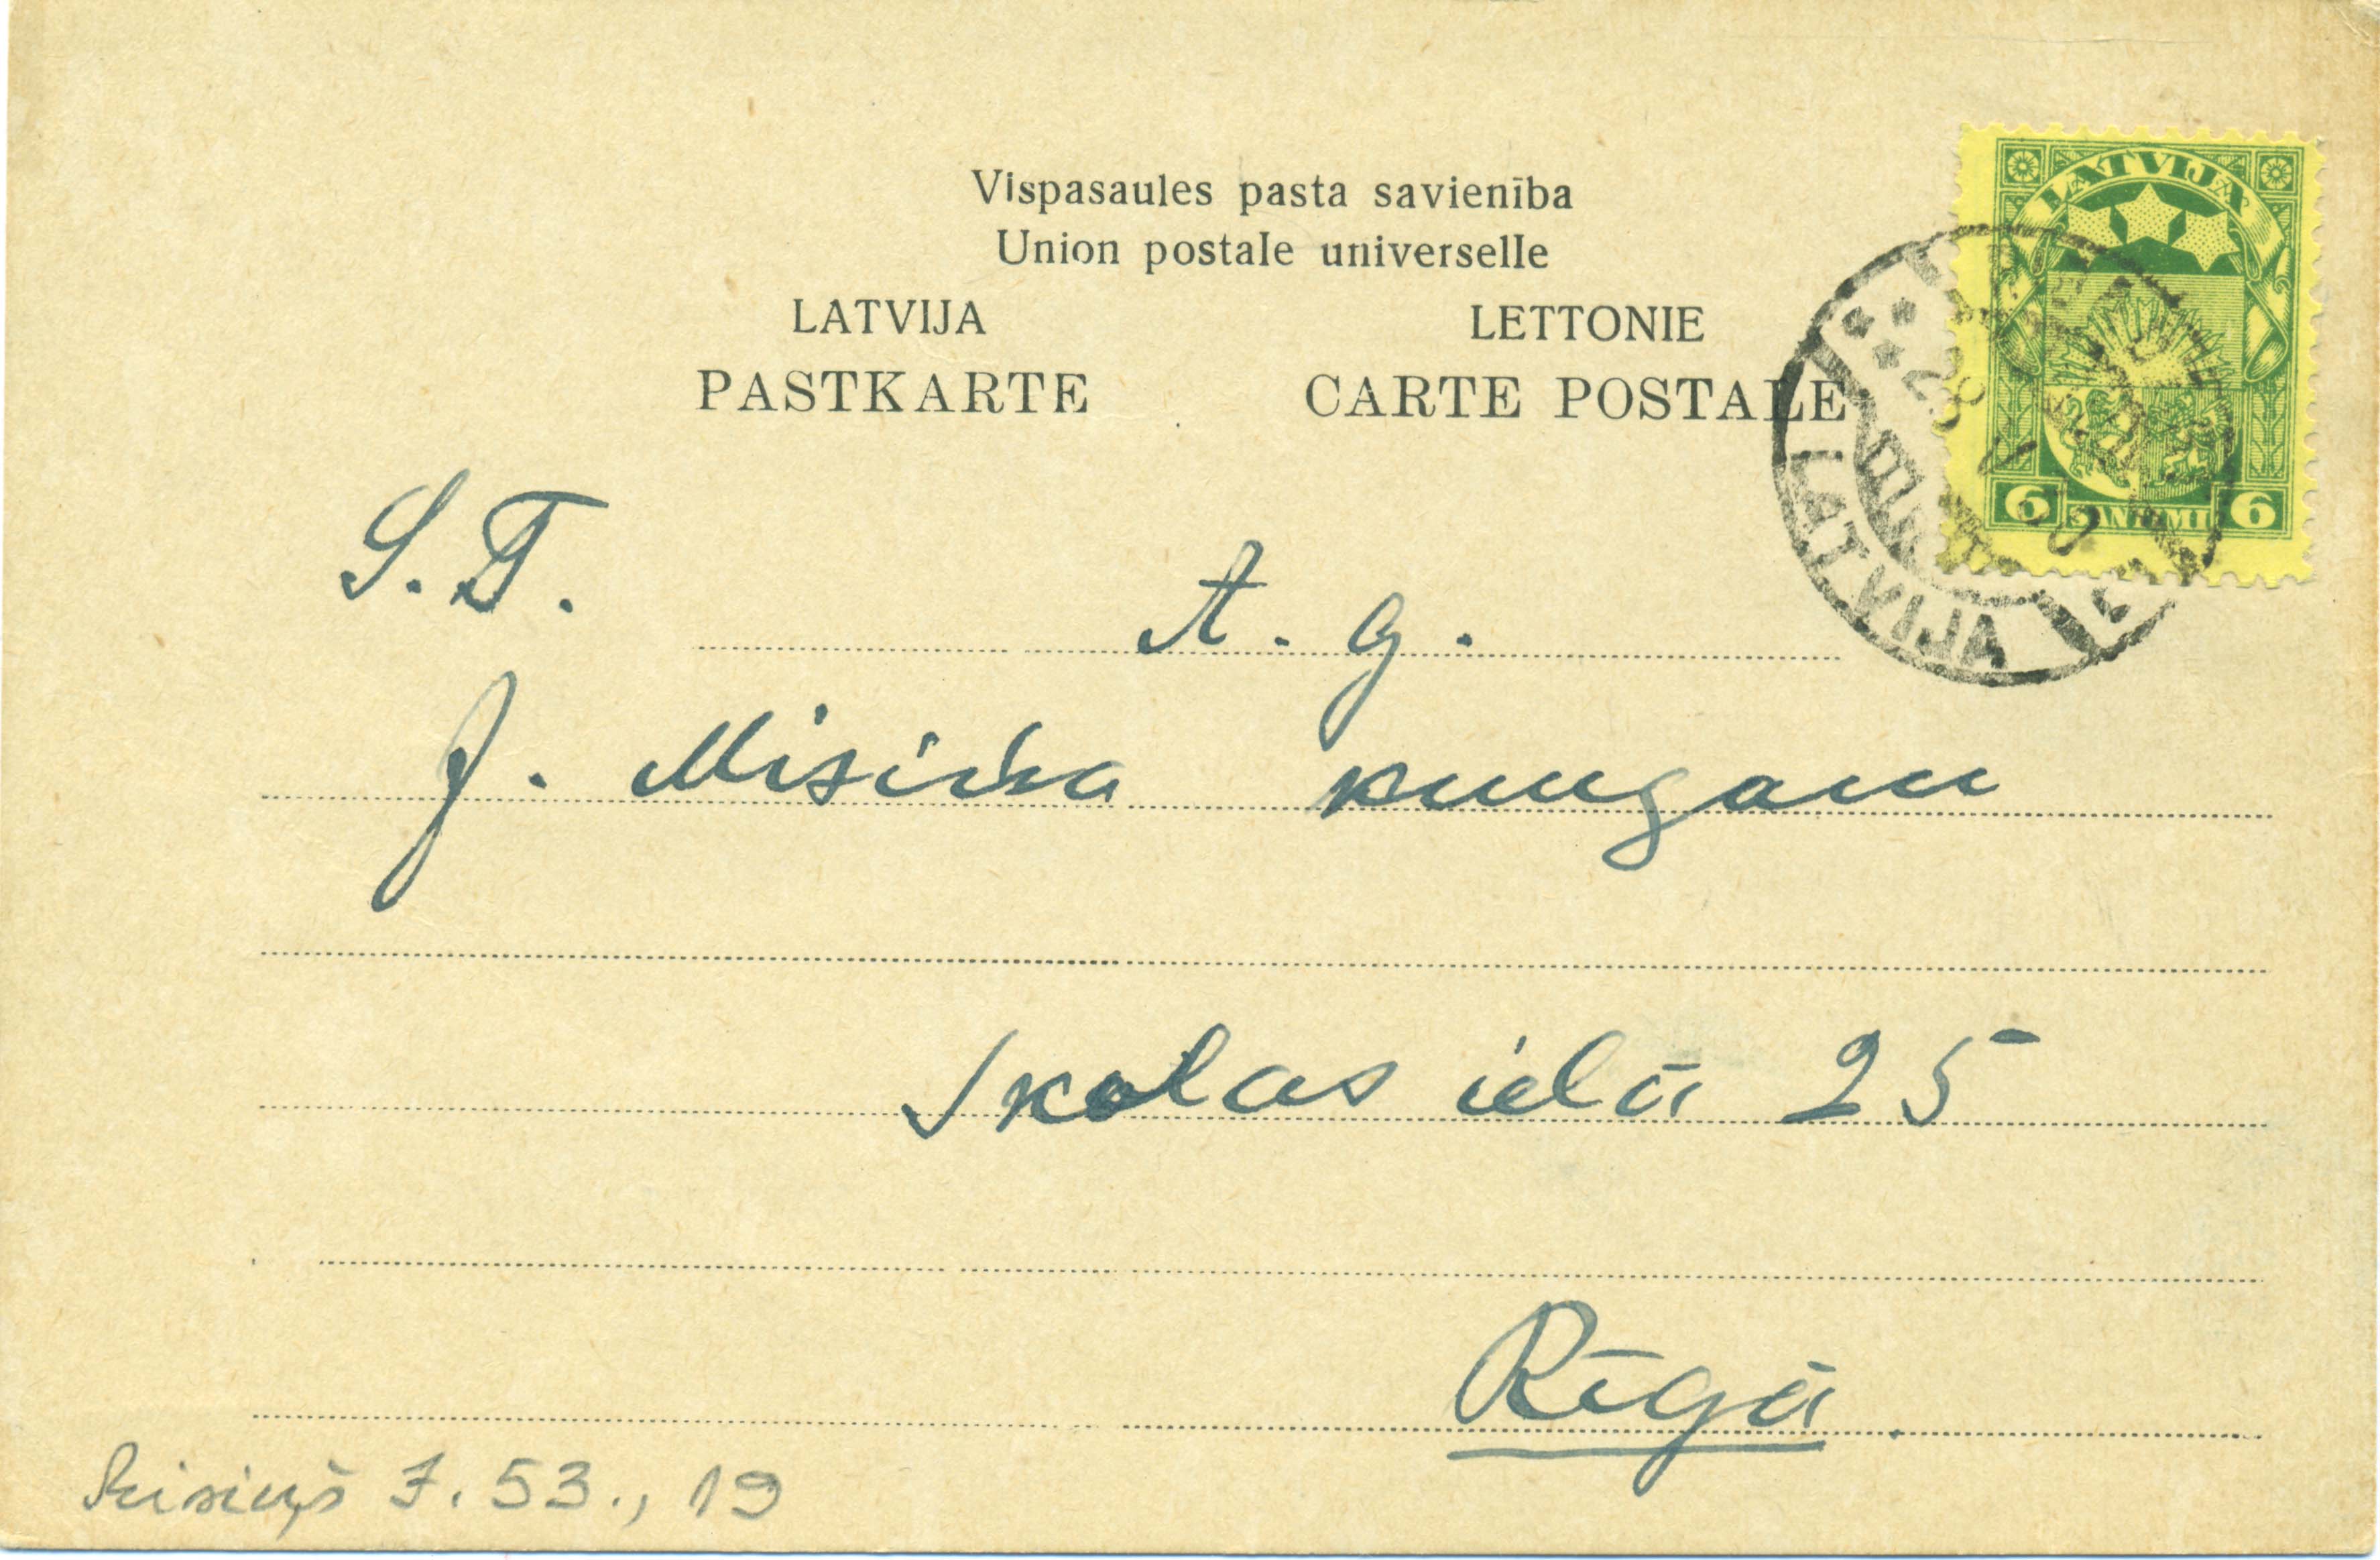 Vispasaules pasta savienība
Union postale universelle
LATVIJA LETTONIE
PASTKARTE CARTE POSTALE
LATVIJA
6 SANTIMI 6
28 V
LATVIJA
S. T.
A. g.
J. Misiņa kungam
Skolas ielā 25
Rīgā.
Misiņš J. 53., 19